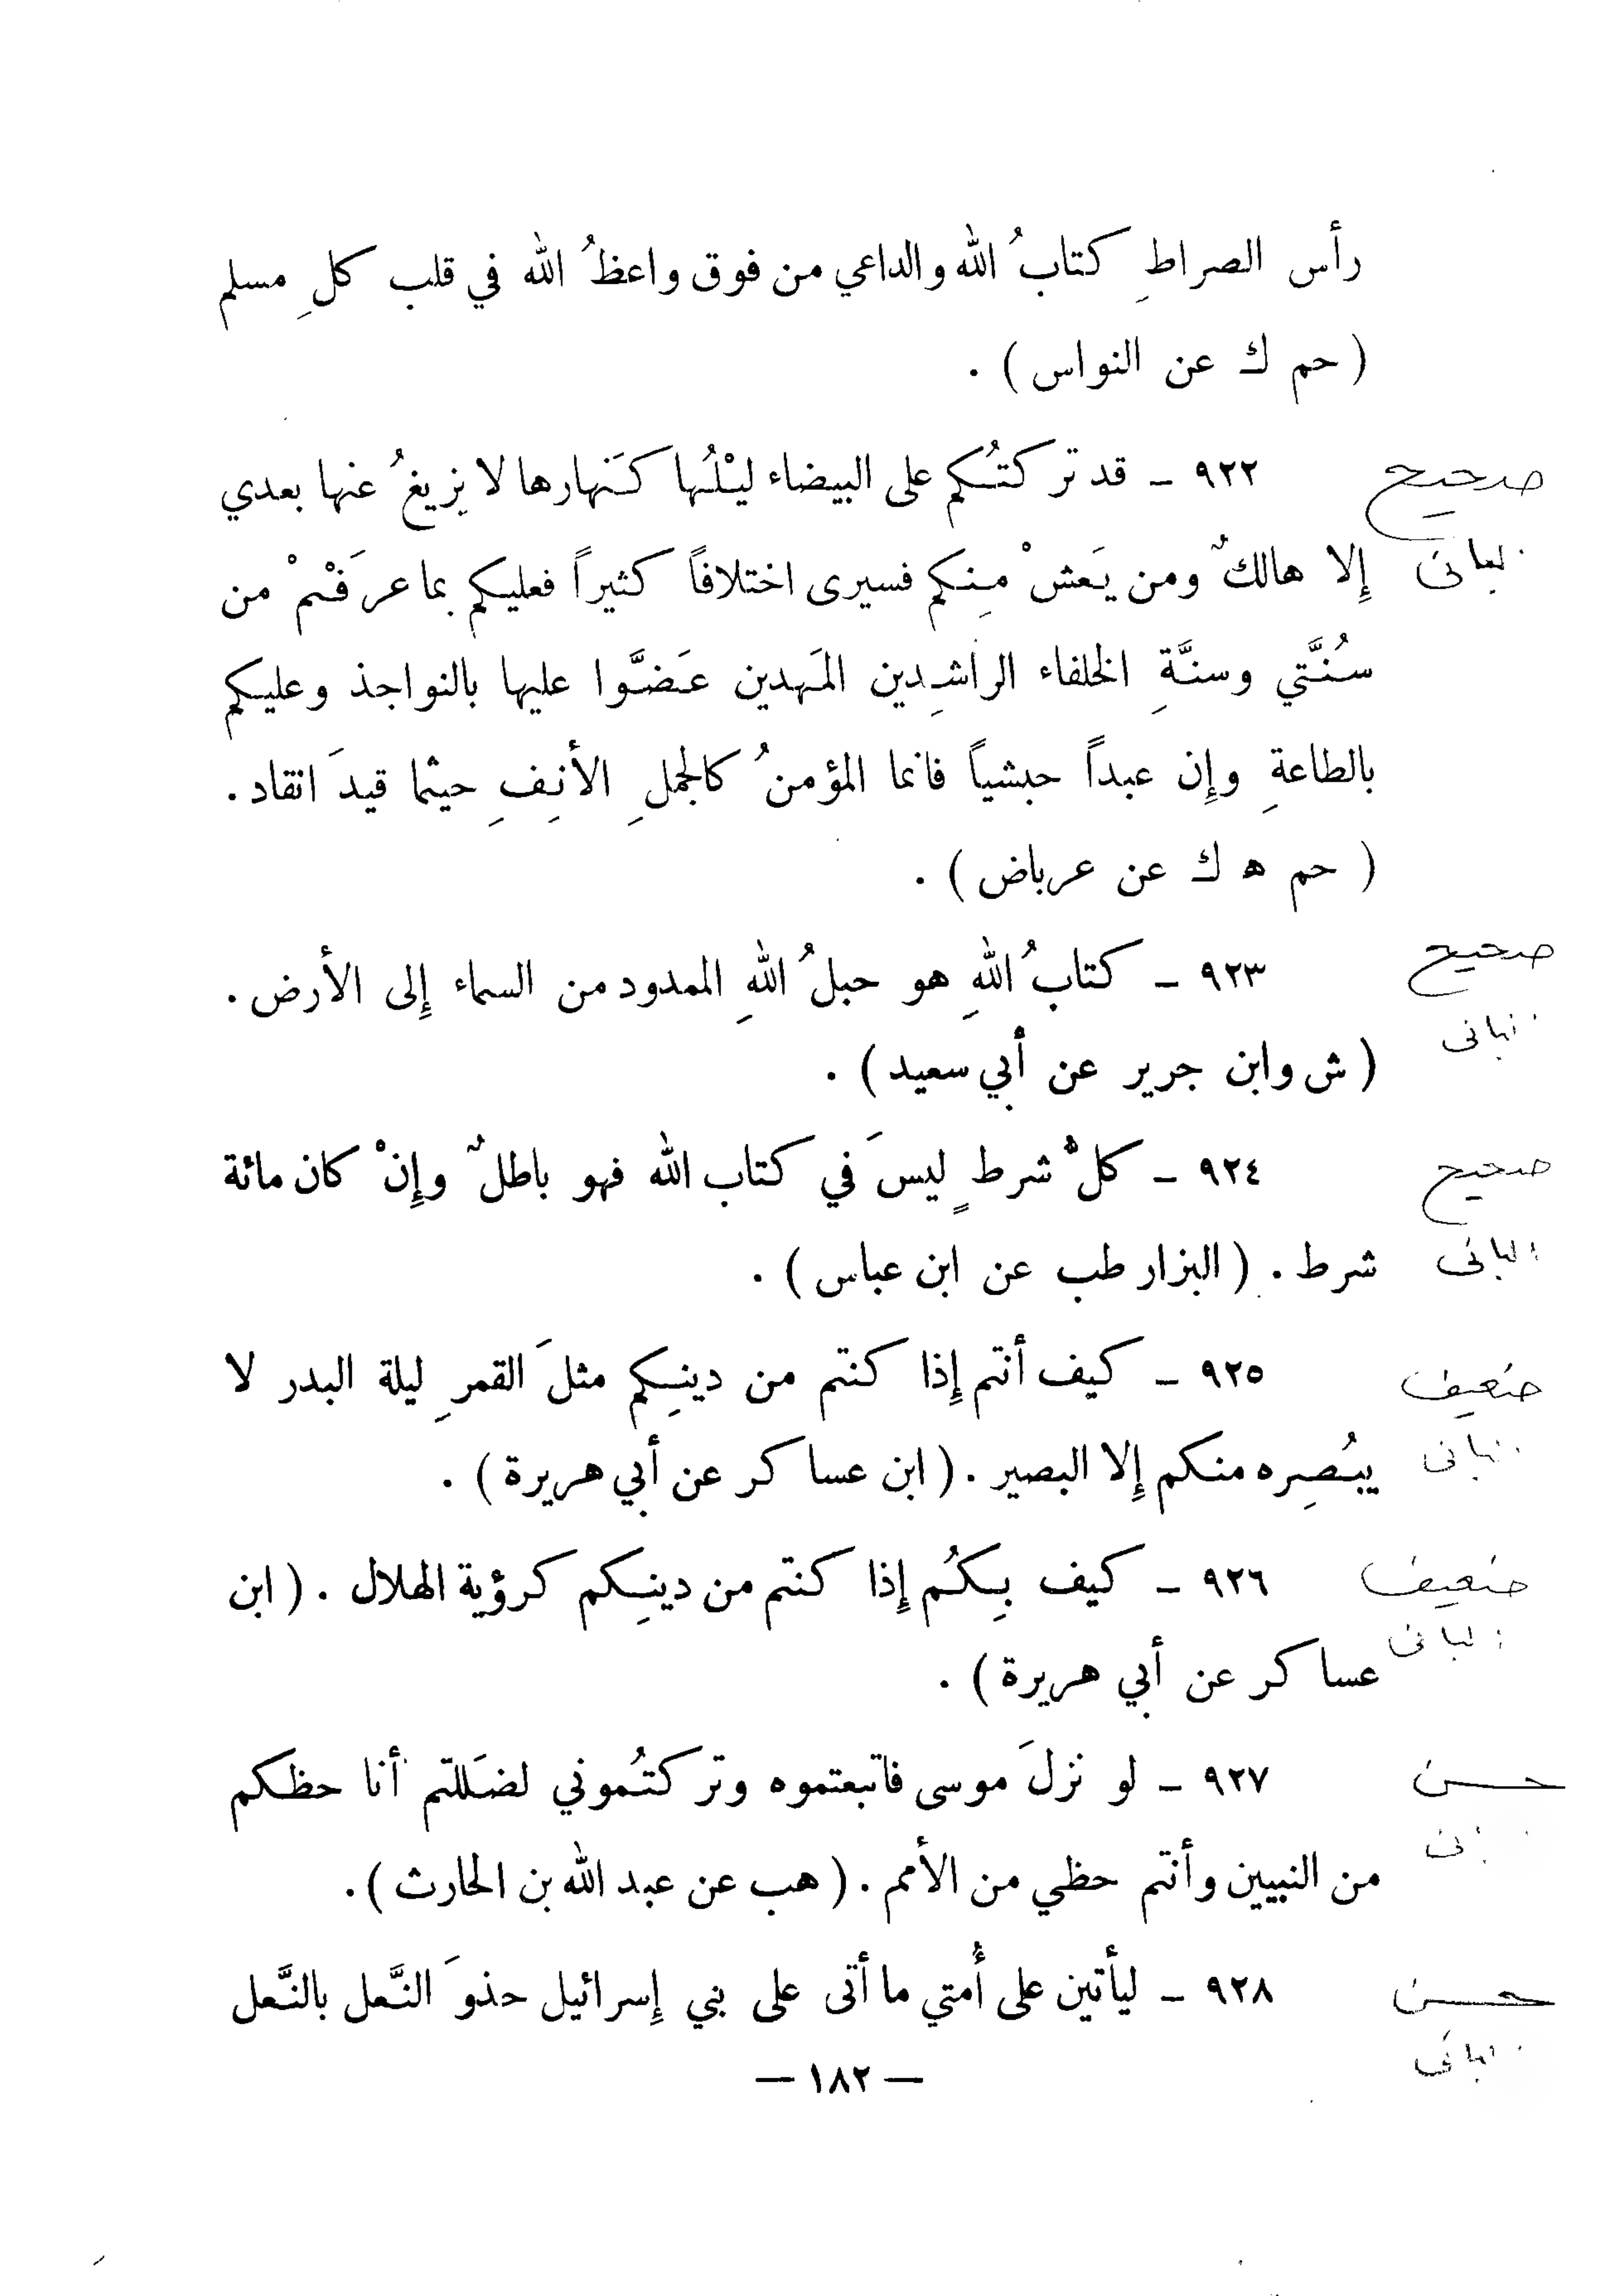 رأس الصراطِ كتابُ الله والداعي من فوق واعظُ الله في قلب كلِ مسلم
( حم ك عن النواس ) .
صحيح
٩٢٢ ــ قد تركتُكم على البيضاء ليْلُها كَنهارها لا يزِيغُ عنها بعدي
البانى
إِلا هالكٌ ومن يَعشْ مِنكم فسيرى اختلافاً كثيراً فعليكم بما عرَفْتمْ من
سُنَّتي وسنَّةِ الخلفاء الراشِدين المَهدين عَضَّوا عليها بالنواجذ وعليكم
بالطاعةِ وإِن عبداً حبشياً فانما المؤمنُ كالجملِ الأنِفِ حيثما قيدَ انقاد .
( حم ه ك عن عرباض ) .
صحيح
٩٢٣ ــ كتابُ اللهِ هو حبلُ اللهِ الممدود من السماء إِلى الأرض .
البانى
( ش وابن جرير عن أبي سعيد ) .
صحيح
٩٢٤ ــ كلُّ شرطٍ ليسَ في كتاب الله فهو باطلٌ وإِنْ كان مائة
البانى
شرط . ( البزار طب عن ابن عباس ) .
ضعيف
٩٢٥ ــ كيف أنتم إِذا كنتم من دينِكم مثلَ القمرِ ليلة البدر لا
البانى
يبُصِره منكم إِلا البصير . ( ابن عساكر عن أبي هريرة ) .
ضعيف
٩٢٦ ــ كيف بِكُم إِذا كنتم من دينِكم كرؤية الهلال . ( ابن
البانى
عساكر عن أبي هريرة ) .
حسن
٩٢٧ ــ لو نزلَ موسى فاتبعتموه وتركتُموني لضَللتم أنا حظكم
من النبيين وأنتم حظي من الأمم . ( هب عن عبد الله بن الحارث ) .
حسن
٩٢٨ ــ ليأتين على أُمتي ما أتى على بني إِسرائيل حذوَ النَّعل بالنَّعل
البانى
— ١٨٢ —